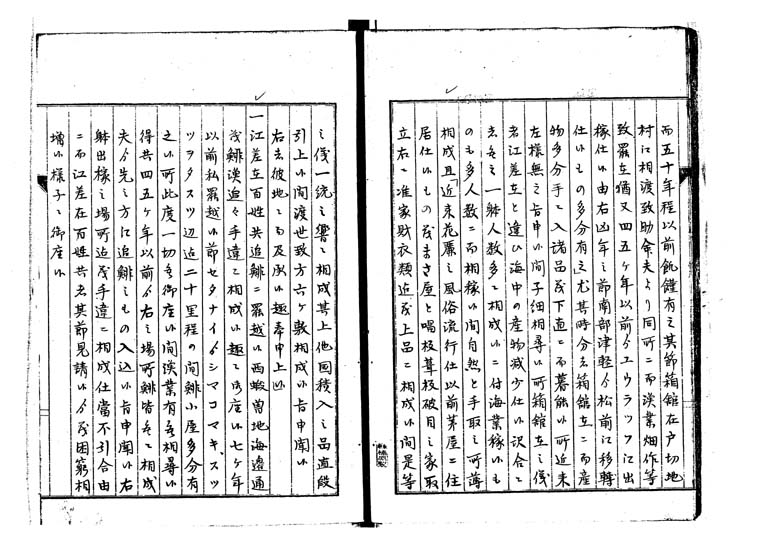 而五十年程以前飢饉有之其節箱館在戸切地
村江相渡致助命夫より同所ニ而漁業畑作等
致罷在猶又四五ケ年以前ゟユウラツフ江出
稼仕候由右凶年之節南部津軽ゟ松前江移轉
仕候もの多分有之尤其時分者箱館ニ而産
物多分手ニ入諸品茂下直ニ而暮能候所近来
左様無之旨申候間子細相尋候所箱館在之儀
者江差在と違ひ海中の産物減少仕候訳合ニ
者無之一躰人数多ニ相成候ニ付海業稼候も
のも多人数ニ而相稼候間自然と手取之所薄
相成且近来花麗之風俗流行仕以前茅屋ニ住
居仕候もの茂まさ屋と唱板葺板破目之家取
立右ニ准家財衣類迄茂上品ニ相成候間是等
之儀一統之響ニ相成其上他国積入之品直段
引上候間渡世致方六ケ敷相成候旨申聞候
右者彼地ニ而及承候趣奉申上候
一江差在百姓共追鯡ニ罷越候西蝦夷地海邉通
浅鯡漁追々手違ニ相成候趣ニ御座候七ケ年
以前私罷越候節セタナイゟシマコマキスツ
ツヲタスツ辺迄二十里程の間鯡小屋多分有
之候所此度一切無御座候間漁業有無相尋候
得共四五ケ年以前ゟ右之場所鯡皆無ニ相成
夫ゟ先之方江追鯡之もの入込候旨申聞候右
躰出稼之場所迄茂手違ニ相成仕當不引合由
ニ而江差在百姓共者其節見請候ゟ茂困窮相
増候様子ニ御座候